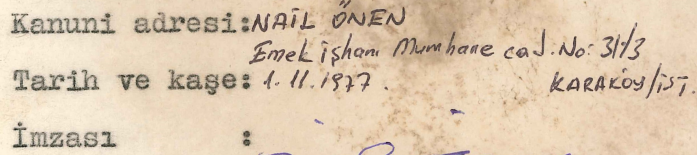 Kanuni adresi: NAİL ÖNEN
Emek işhanı Mumhane cad. No: 31/3
Tarih ve kaşe: 1.11.1977. KARAKÖY/İST.
İmzası :